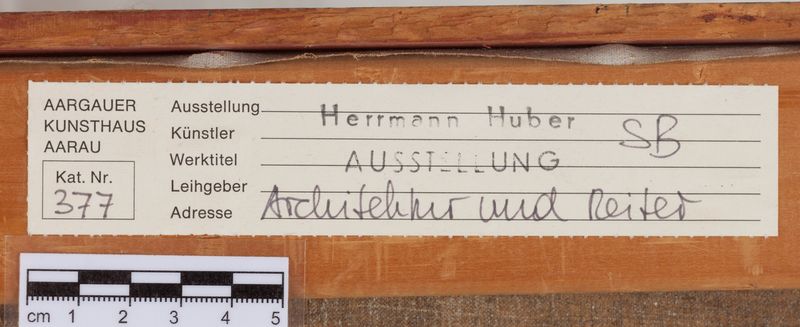 AARGAUER
KUNSTHAUS
AARAU
Kat. Nr.
377
Ausstellung
Künstler
Werktitel
Leihgeber
Adresse
Herrmann Huber
SB
AUSSTELLUNG
Architektur und Reiter
cm 1 2 3 4 5